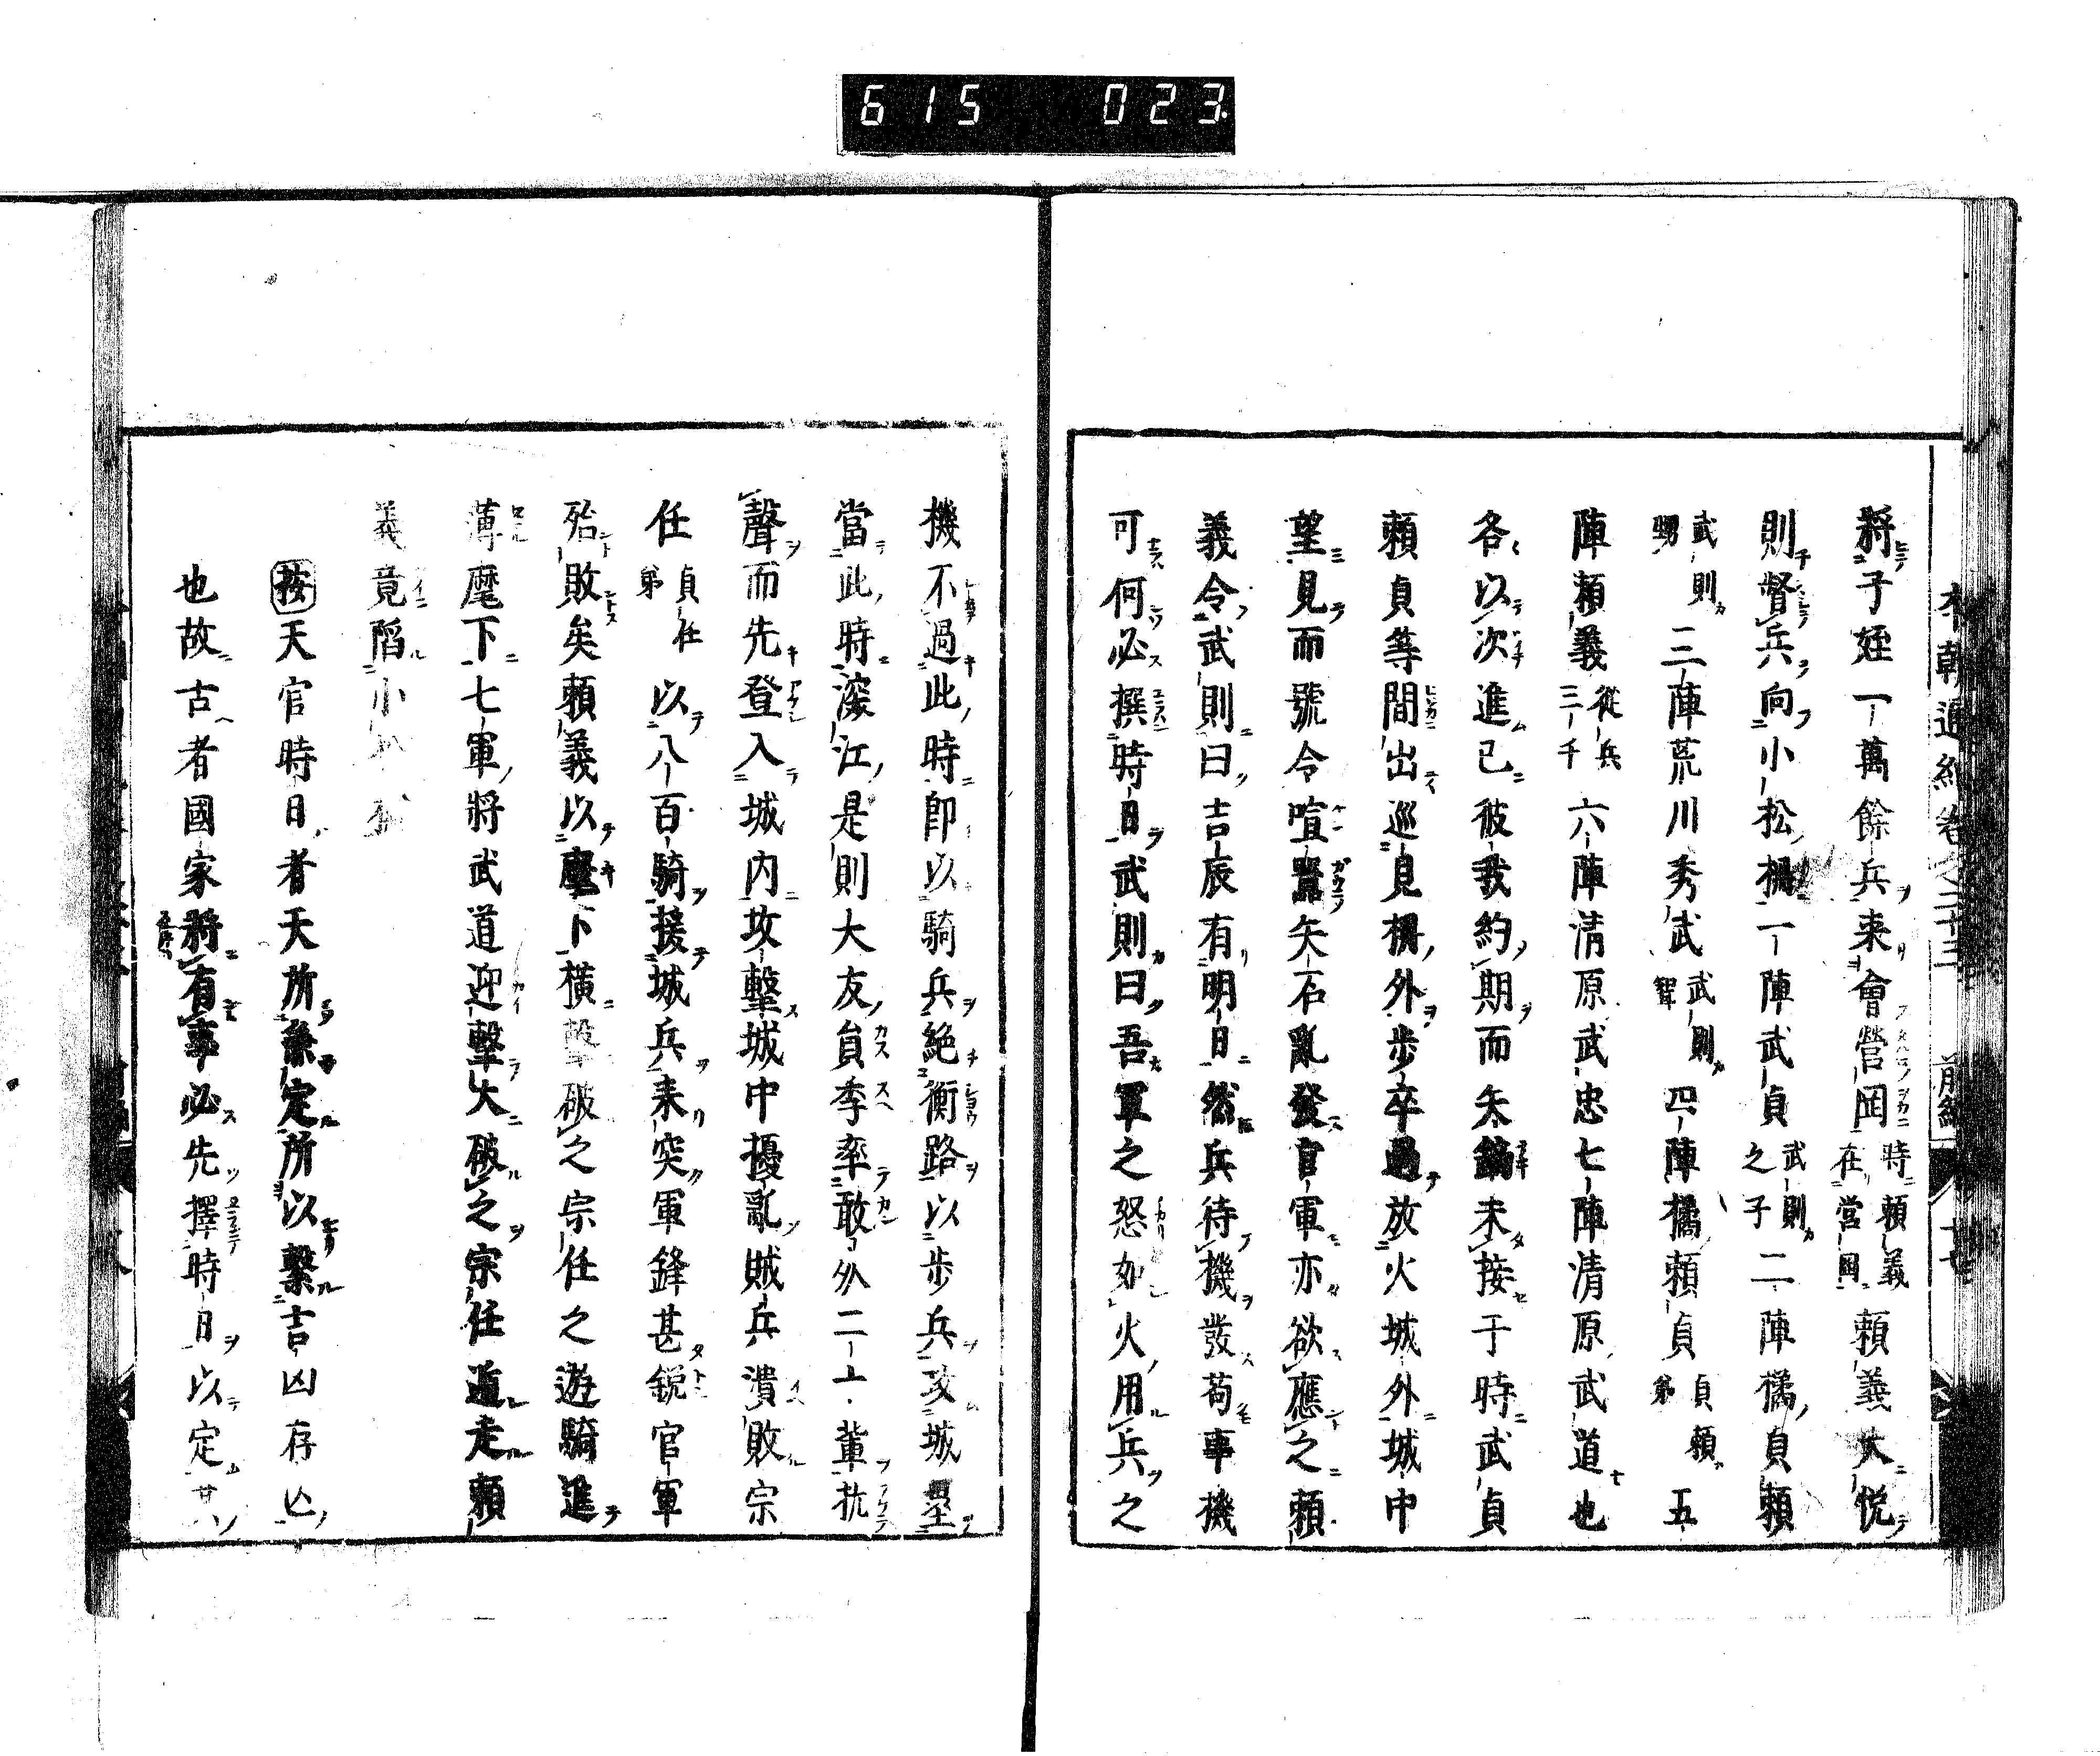 615 023
本朝通紀卷之二十三 前編
將子姪一萬餘兵來會營岡時頼義在営岡頼義大悦
則督兵向小松柵一陣武貞武則之子二陣橘貞頼
武則甥三陣荒川秀武武則聟四陣橘頼貞貞頼弟五
陣頼義從兵三千六陣清原武忠七陣清原武道也
各以次進已彼我約期而矢鏑未接于時武貞
頼貞等間出巡見柵外歩卒過放火城外城中
望見而號令喧囂矢石亂發官軍亦欲應之頼
義令武則曰吉辰有明日然兵待機發苟事機
可何必撰時日武則曰吾軍之怒如火用兵之
機不過此時即以騎兵絶衝路以歩兵攻城壘
當此時深江是則大友員季率敢外二十輩抗
聲而先登入城内攻擊城中擾亂賊兵潰敗宗
任貞任弟以八百騎援城兵來突軍鋒甚鋭官軍
殆敗矣頼義以麾下橫擊破之宗任之遊騎進
薄麾下七軍將武道迎擊大破之宗任遁走頼
義竟陷小
按天官時日者天所兼定所以繫吉凶存亡
也故古者國家將有事必先擇時日以定其